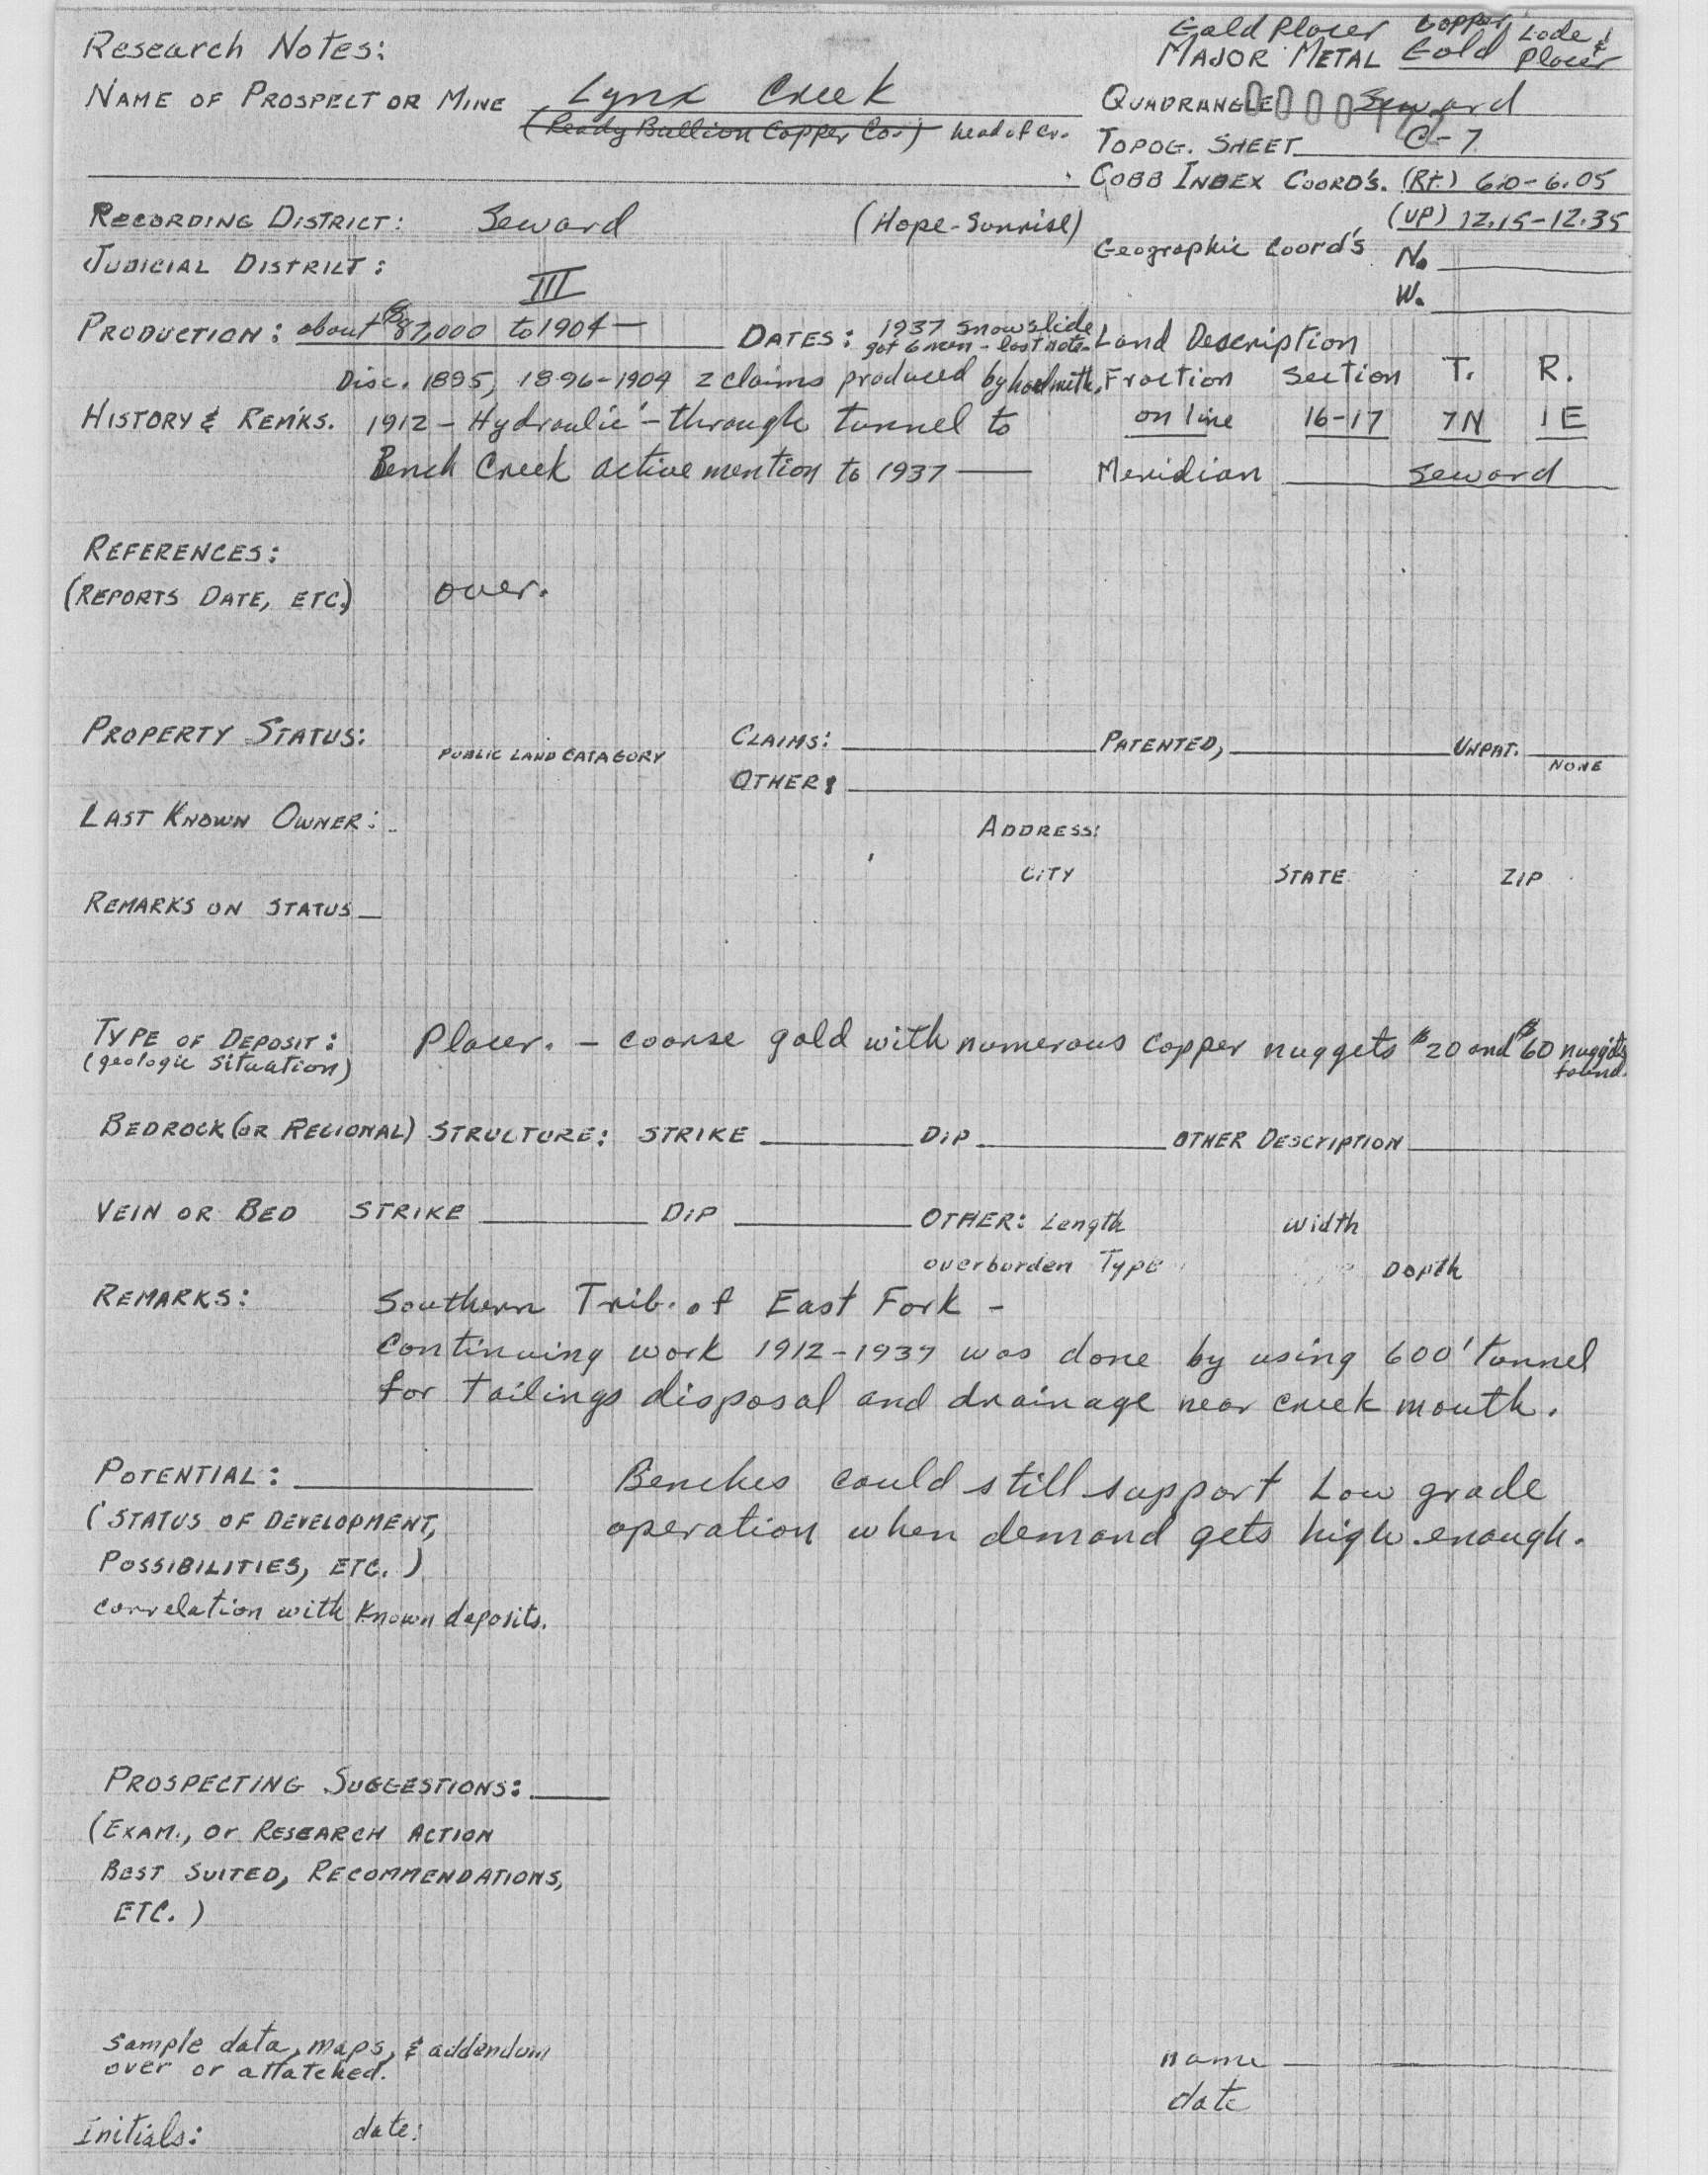 Gold Placer Copper Lode &
Research Notes:
MAJOR METAL Gold Placer
NAME OF PROSPECT OR MINE Lynx Creek
QUADRANGLE Seward
(Ready Bullion Copper Co.) head of cr.
TOPOG. SHEET C-7
COBB INDEX COORD'S. (RT.) 6.0-6.05
RECORDING DISTRICT: Seward (Hope-Sunrise)
(UP) 12.15-12.35
Geographic Coord's N.
JUDICIAL DISTRICT: III
W.
PRODUCTION: about $87,000 to 1904 —
DATES: 1937 snowslide
got 6 men - last note-
Land Description
Disc. 1895, 1896-1904 2 claims produced by hand meth.
Fraction Section T. R.
HISTORY & REM'KS. 1912 - Hydraulic - through tunnel to
on line 16-17 7N 1E
Bench Creek active mention to 1937 —
Meridian Seward
REFERENCES:
(REPORTS DATE, ETC.) over.
PROPERTY STATUS:
PUBLIC LAND CATAGORY
CLAIMS: PATENTED, UNPAT.
NONE
OTHER:
LAST KNOWN OWNER:
ADDRESS:
CITY STATE ZIP
REMARKS ON STATUS
TYPE OF DEPOSIT: Placer. - coarse gold with numerous copper nuggets $20 and $60 nuggets
(geologic situation) found.
BEDROCK (OR REGIONAL) STRUCTURE: STRIKE DIP OTHER DESCRIPTION
VEIN OR BED STRIKE DIP OTHER: Length width
overburden Type Depth
REMARKS: Southern Trib. of East Fork -
Continuing work 1912-1937 was done by using 600' tunnel
for tailings disposal and drainage near creek mouth.
POTENTIAL: Benches could still support Low grade
(STATUS OF DEVELOPMENT, operation when demand gets high enough.
POSSIBILITIES, ETC.)
correlation with known deposits.
PROSPECTING SUGGESTIONS:
(EXAM., Or RESEARCH ACTION
BEST SUITED, RECOMMENDATIONS,
ETC.)
Sample data, maps, & addendum
over or attatched.
name
date
Initials: date: